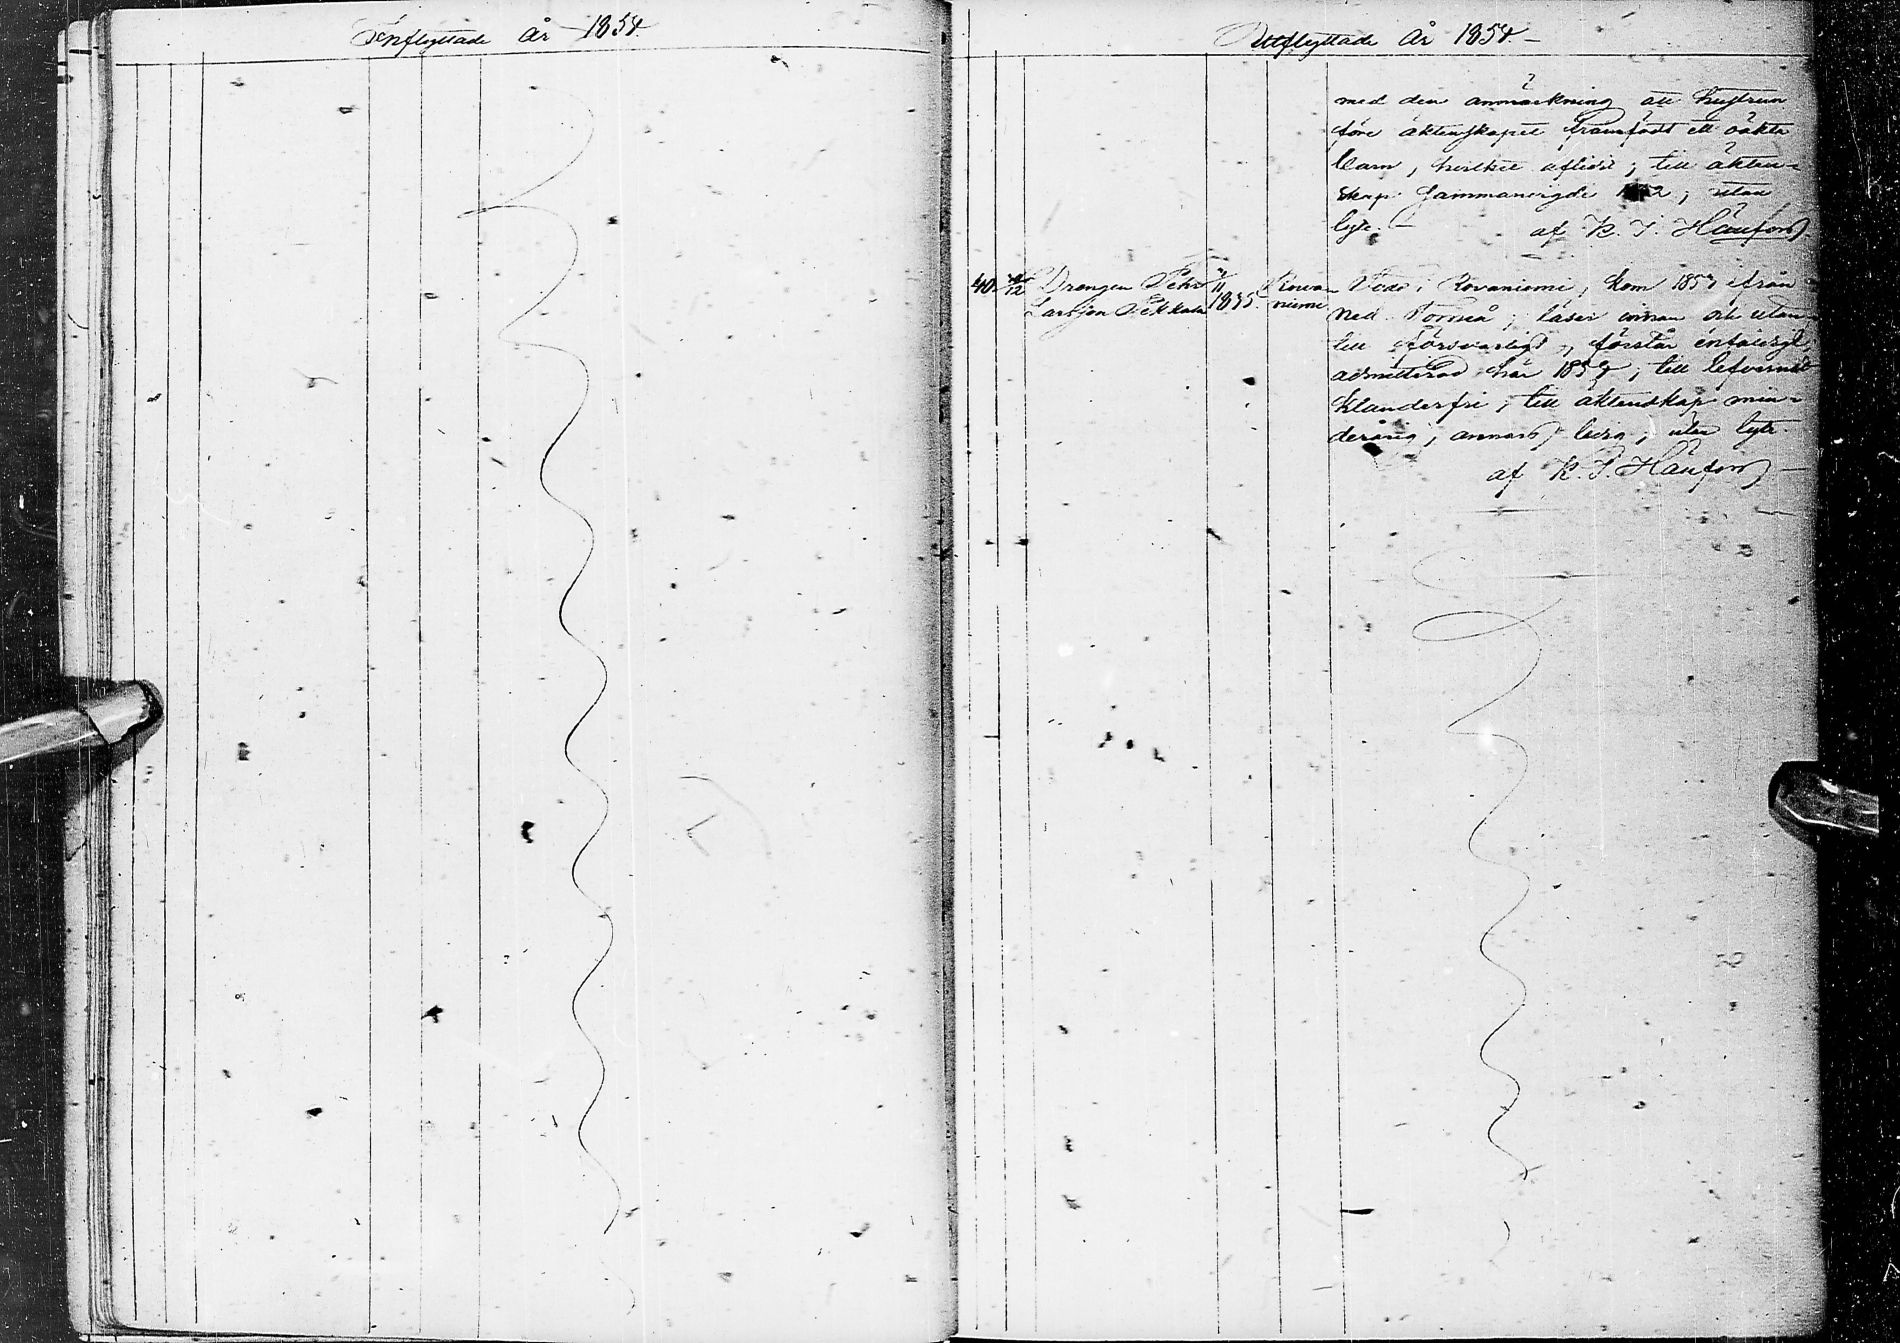 Inflyttade år 1854
Uttflyttade år 1854
med den anmärkning att hustrun
före äktenskapet framfödt ett oäkta
barn, hvilket aflidit; till äkten-
skap sammanvigde 2; utan
lyte. af K. J. Hänfors
40. 12 Drengen Pehr 11 Rova- Född i Rovaniemi, kom 1853 ifrån
Larsson Pekkala 1835 niemi Ned. Torneå; läser innan och utan-
till försvarligt, förstår enfaldigt,
admitterad här 1853; till lefvernet
klanderfri; till äktenskap min-
derårig, annars ledig; utan lyte
af K. J. Hänfors